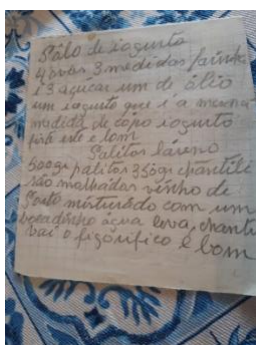 Bôlo de iogurto
4 ovos 3 medidas farinha
e 3 açucar um de ólio
um iogurte que é a mesma
medida de cópo iogurto
este e bom
Palitos
500gr palitos 350gr chantili
são malhadas vinho de
Porto misturado com um
bocadinho água leva, chanti
vai o frigorifico é bom